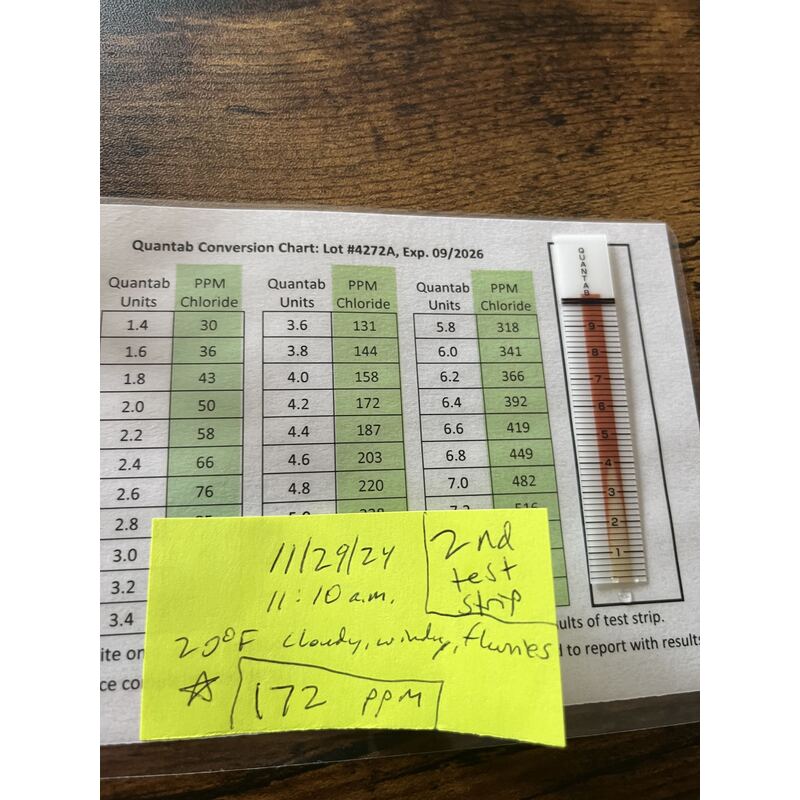 Quantab Conversion Chart: Lot #4272A, Exp. 09/2026
Quantab Units PPM Chloride Quantab Units PPM Chloride Quantab Units PPM Chloride
1.4 30 3.6 131 5.8 318
1.6 36 3.8 144 6.0 341
1.8 43 4.0 158 6.2 366
2.0 50 4.2 172 6.4 392
2.2 58 4.4 187 6.6 419
2.4 66 4.6 203 6.8 449
2.6 76 4.8 220 7.0 482
2.8
3.0
3.2
3.4
QUANTAB
9
8
7
6
5
4
3
2
1
11/29/24
11:10 a.m.
2nd
test
strip
20°F cloudy, windy, flurries
☆ 172 PPM
ults of test strip.
ite on
to report with results
ce co